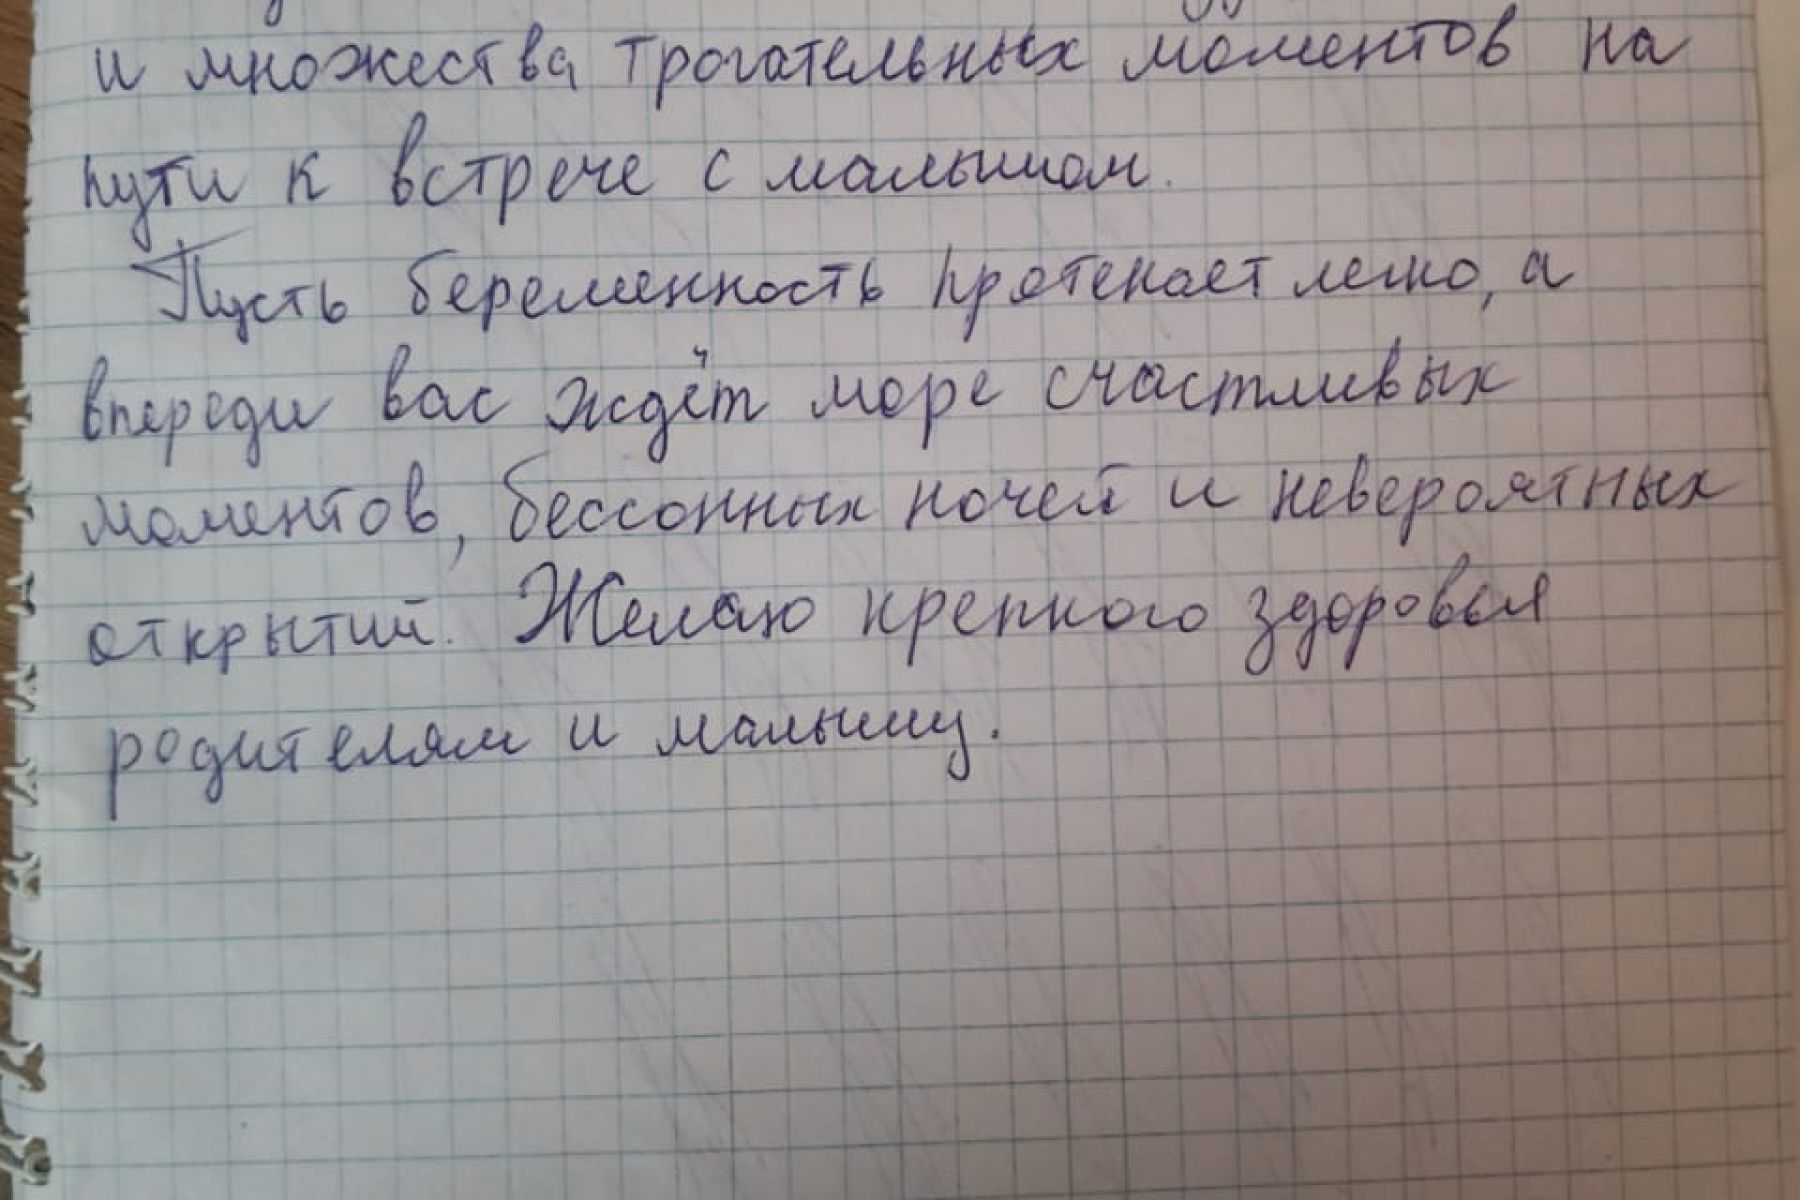 и множества трогательных моментов на
пути к встрече с малышом.
Пусть беременность протекает легко, а
впереди вас ждёт море счастливых
моментов, бессонных ночей и невероятных
открытий. Желаю крепкого здоровья
родителям и малышу.